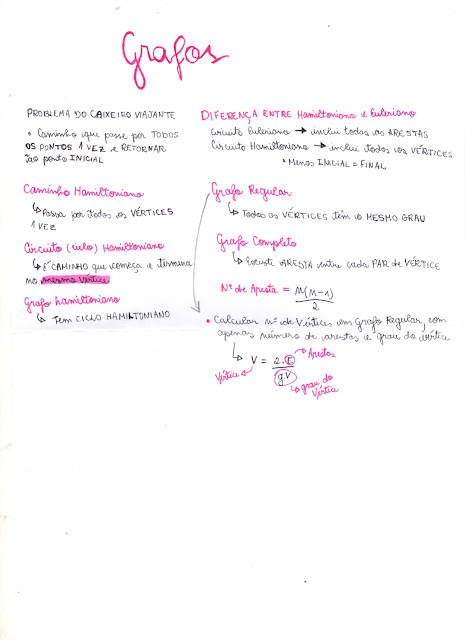 Grafos
PROBLEMA DO CAIXEIRO VIAJANTE
• Caminho que passe por TODOS
OS PONTOS 1 VEZ e RETORNAR
ao ponto INICIAL
Caminho Hamiltoniano
↳ Passa por todos os VÉRTICES
1 VEZ
Circuito (ciclo) Hamiltoniano
↳ É CAMINHO que começa e termina
no mesmo vértice
Grafo hamiltoniano
↳ Tem CICLO HAMILTONIANO
DIFERENÇA ENTRE Hamiltoniano e Euleriano
Circuito Euleriano → inclui todas as ARESTAS
Circuito Hamiltoniano → inclui todos os VÉRTICES
• Menos INICIAL = FINAL
Grafo Regular
↳ Todos os VÉRTICES têm o MESMO GRAU
Grafo Completo
↳ Existe ARESTA entre cada PAR de VÉRTICE
Nº de Aresta = n(n-1)
2
• Calcular nº de Vértices em Grafo Regular, com
apenas número de arestas e grau do vértice
↳ V = 2.E → Arestas
Vértice g.V
↳ grau do
Vértice